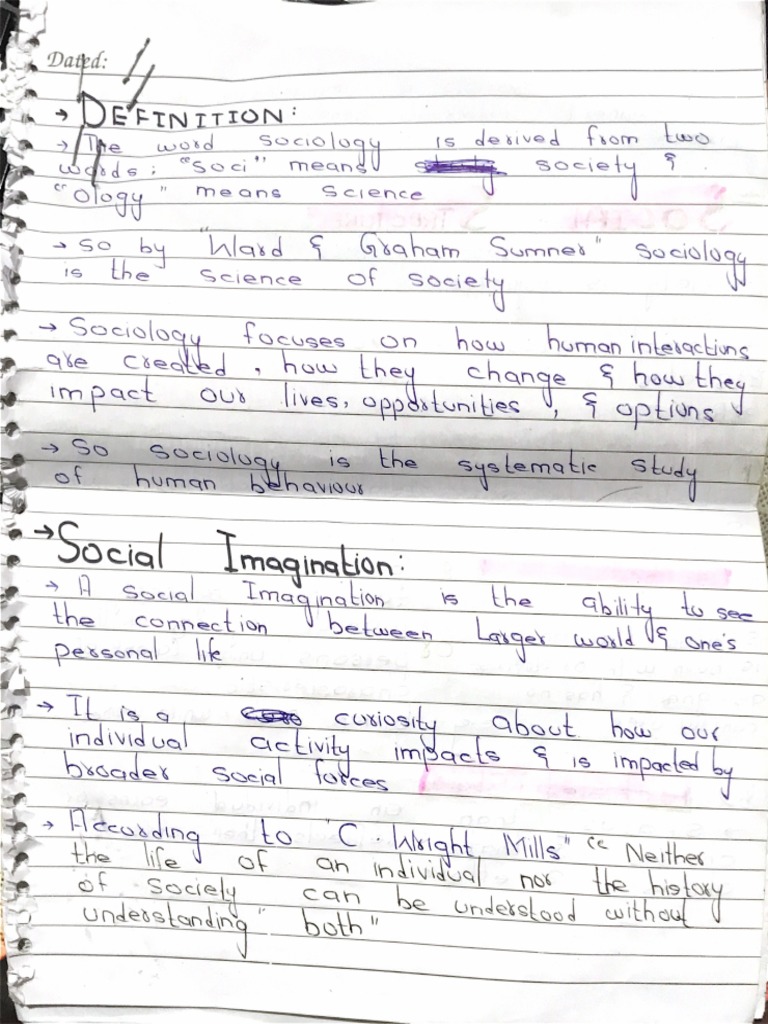 Dated:
→ DEFINITION:
→ The word sociology is derived from two
words: "Soci" means society &
"ology" means science
→ So by "Ward & Graham Sumner" sociology
is the science of society
→ Sociology focuses on how human interactions
are created, how they change & how they
impact our lives, opportunities, & options
→ So sociology is the systematic study
of human behaviour
→ Social Imagination:
→ A social Imagination is the ability to see
the connection between Larger world & one's
personal life
→ It is a curiosity about how our
individual activity impacts & is impacted by
broader social forces
→ According to "C. Wright Mills" "Neither
the life of an individual nor the history
of society can be understood without
understanding" both"